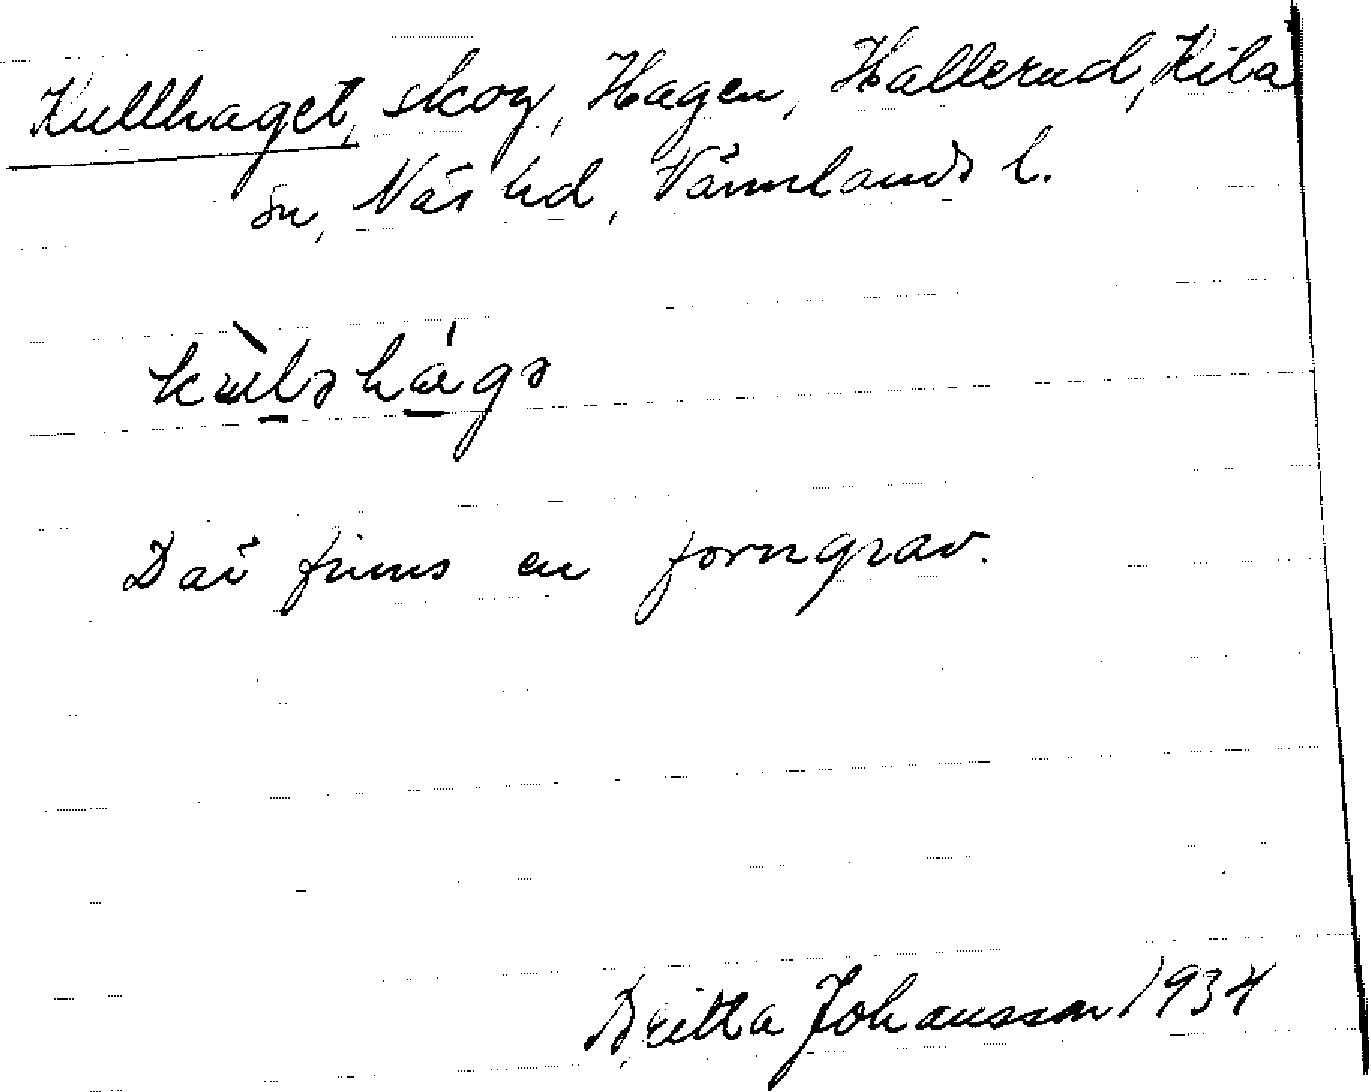 Kullhaget, skog, Hagen, Hallerud, Kila
sn, Näs hd, Värmlands l.
Där finns en forngrav.
Britta Johansson 1934